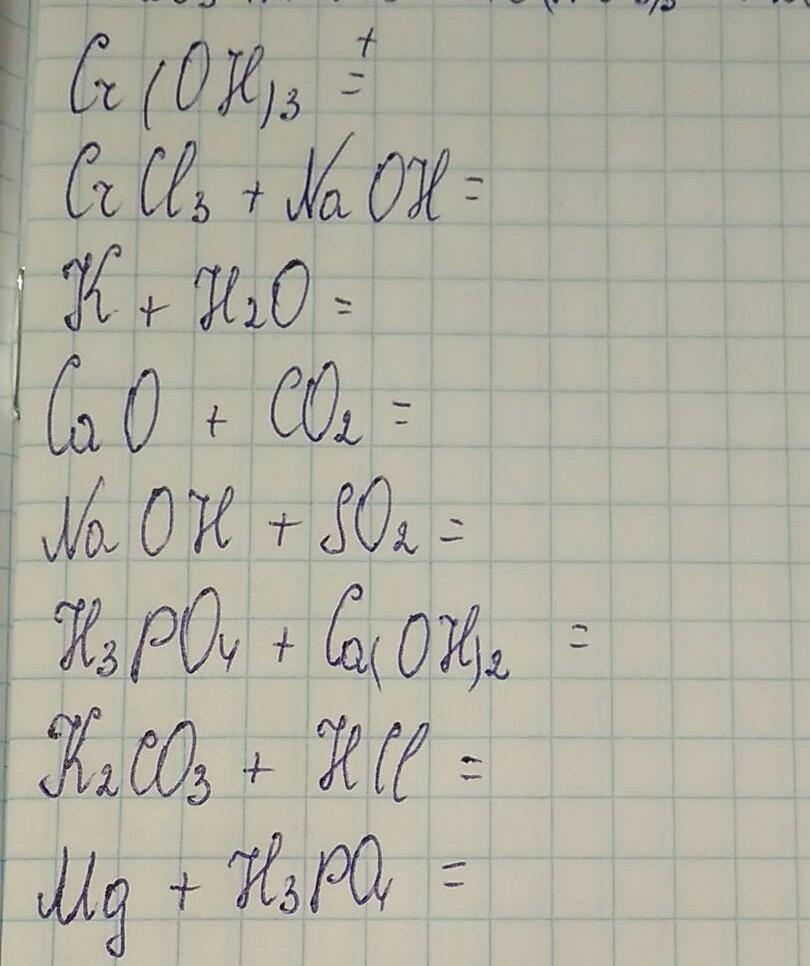 Cr(OH)3 =t
CrCl3 + NaOH =
K + H2O =
CaO + CO2 =
NaOH + SO2 =
H3PO4 + Ca(OH)2 =
K2CO3 + HCl =
Mg + H3PO4 =